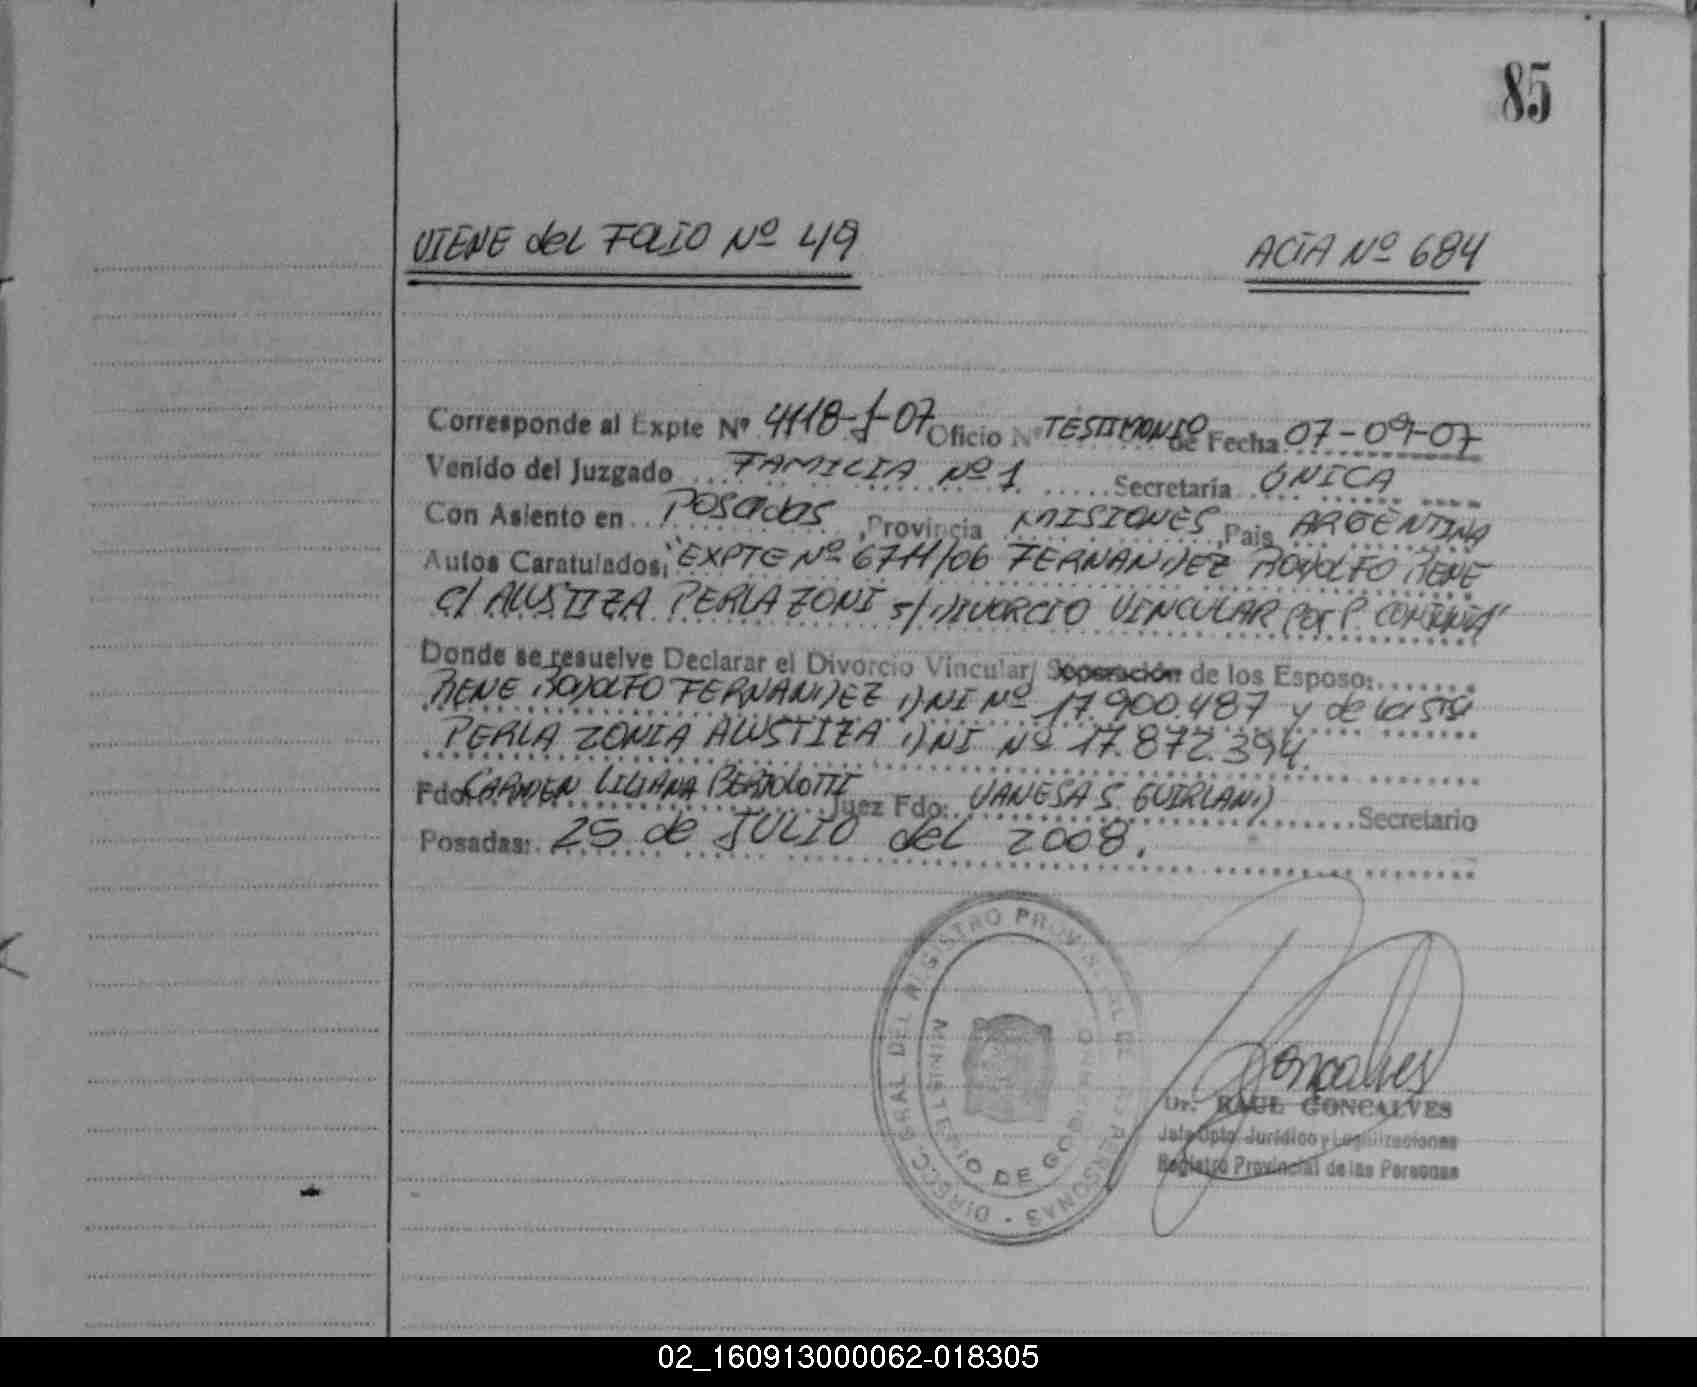 85
VIENE del FOLIO Nº 49 ACTA Nº 684
Corresponde al Expte Nº 4118-J-07 Oficio Nº TESTIMONIO de Fecha 07-09-07
Venido del Juzgado FAMILIA Nº 1 Secretaría ÚNICA
Con Asiento en POSADAS, Provincia MISIONES, Pais ARGENTINA
Autos Caratulados: "EXPTE Nº 6711/06 FERNANDEZ RODOLFO RENE
C/ ALUSTIZA PERLA ZONI s/ DIVORCIO VINCULAR POR P.
Donde se resuelve Declarar el Divorcio Vincular/ Separación de los Esposo:
RENE RODOLFO FERNANDEZ DNI Nº 17.900.487 y de la SRA
PERLA ZONIA ALUSTIZA DNI Nº 17.872.394.
Fdo. CARMEN LILIANA BERTOLOTTI Juez Fdo: VANESA S. GUIRLAND Secretario
Posadas: 25 de JULIO del 2008.
DIRECC. GRAL DEL REGISTRO PROVINCIAL DE LAS PERSONAS
MINISTERIO DE GOBIERNO
Goncalves
Dr. RAUL GONCALVES
Jefe Dpto. Jurídico y Legalizaciones
Registro Provincial de las Personas
02_160913000062-018305